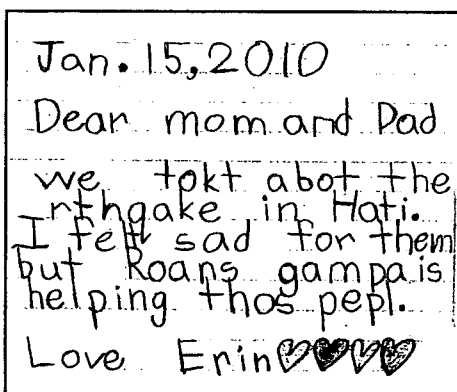 Jan. 15, 2010
Dear mom and Dad
we tokt abot the
rthqake in Hati.
I felt sad for them
but Roans gampa is
helping thos pepl.
Love Erin